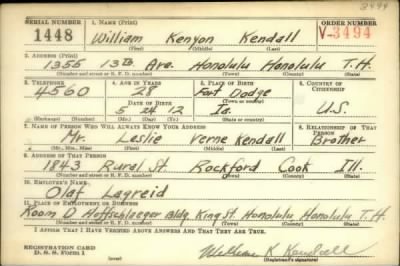 3494
SERIAL NUMBER 1. NAME (Print) ORDER NUMBER
1448 William Kenyon Kendall V-3494
(First) (Middle) (Last)
2. ADDRESS (Print)
1355 13th Ave. Honolulu Honolulu T.H.
(Number and street or R. F. D. number) (Town) (County) (State)
3. TELEPHONE 4. AGE IN YEARS 5. PLACE OF BIRTH 6. COUNTRY OF CITIZENSHIP
4560 28 Fort Dodge
(Town or county)
DATE OF BIRTH
5 24 12 Ia. U.S.
(Exchange) (Number) (Mo.) (Day) (Yr.) (State or country)
7. NAME OF PERSON WHO WILL ALWAYS KNOW YOUR ADDRESS 8. RELATIONSHIP OF THAT PERSON
Mr. Leslie Verne Kendall Brother
(Mr., Mrs., Miss) (First) (Middle) (Last)
9. ADDRESS OF THAT PERSON
1843 Rural St. Rockford Cook Ill.
(Number and street or R. F. D. number) (Town) (County) (State)
10. EMPLOYER'S NAME
Olaf Lagreid
11. PLACE OF EMPLOYMENT OR BUSINESS
Room D Hoffschlaeger Bldg. King St. Honolulu Honolulu T.H.
(Number and street or R. F. D. number) (Town) (County) (State)
I AFFIRM THAT I HAVE VERIFIED ABOVE ANSWERS AND THAT THEY ARE TRUE.
REGISTRATION CARD
D. S. S. Form 1
William K Kendall
(Registrant's signature)